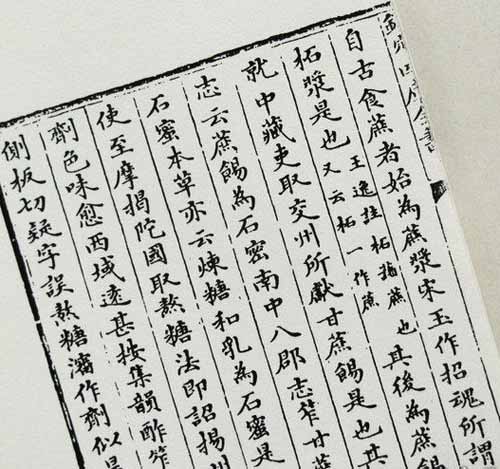 欽定四庫全書
自古食蔗者始為蔗漿宋玉作招魂所謂
拓漿是也王逸註拓藷蔗也又云拓一作蔗其後為蔗
就中藏吏取交州所獻甘蔗餳是也其
志云蔗餳為石密南中八郡志笮甘蔗
石蜜本草亦云煉糖和乳為石蜜是
使至摩揭陀國取熬糖法即詔揚州
劑色味愈西域遠甚按集韻酢笮
側板切疑字誤熬糖瀋作劑似是